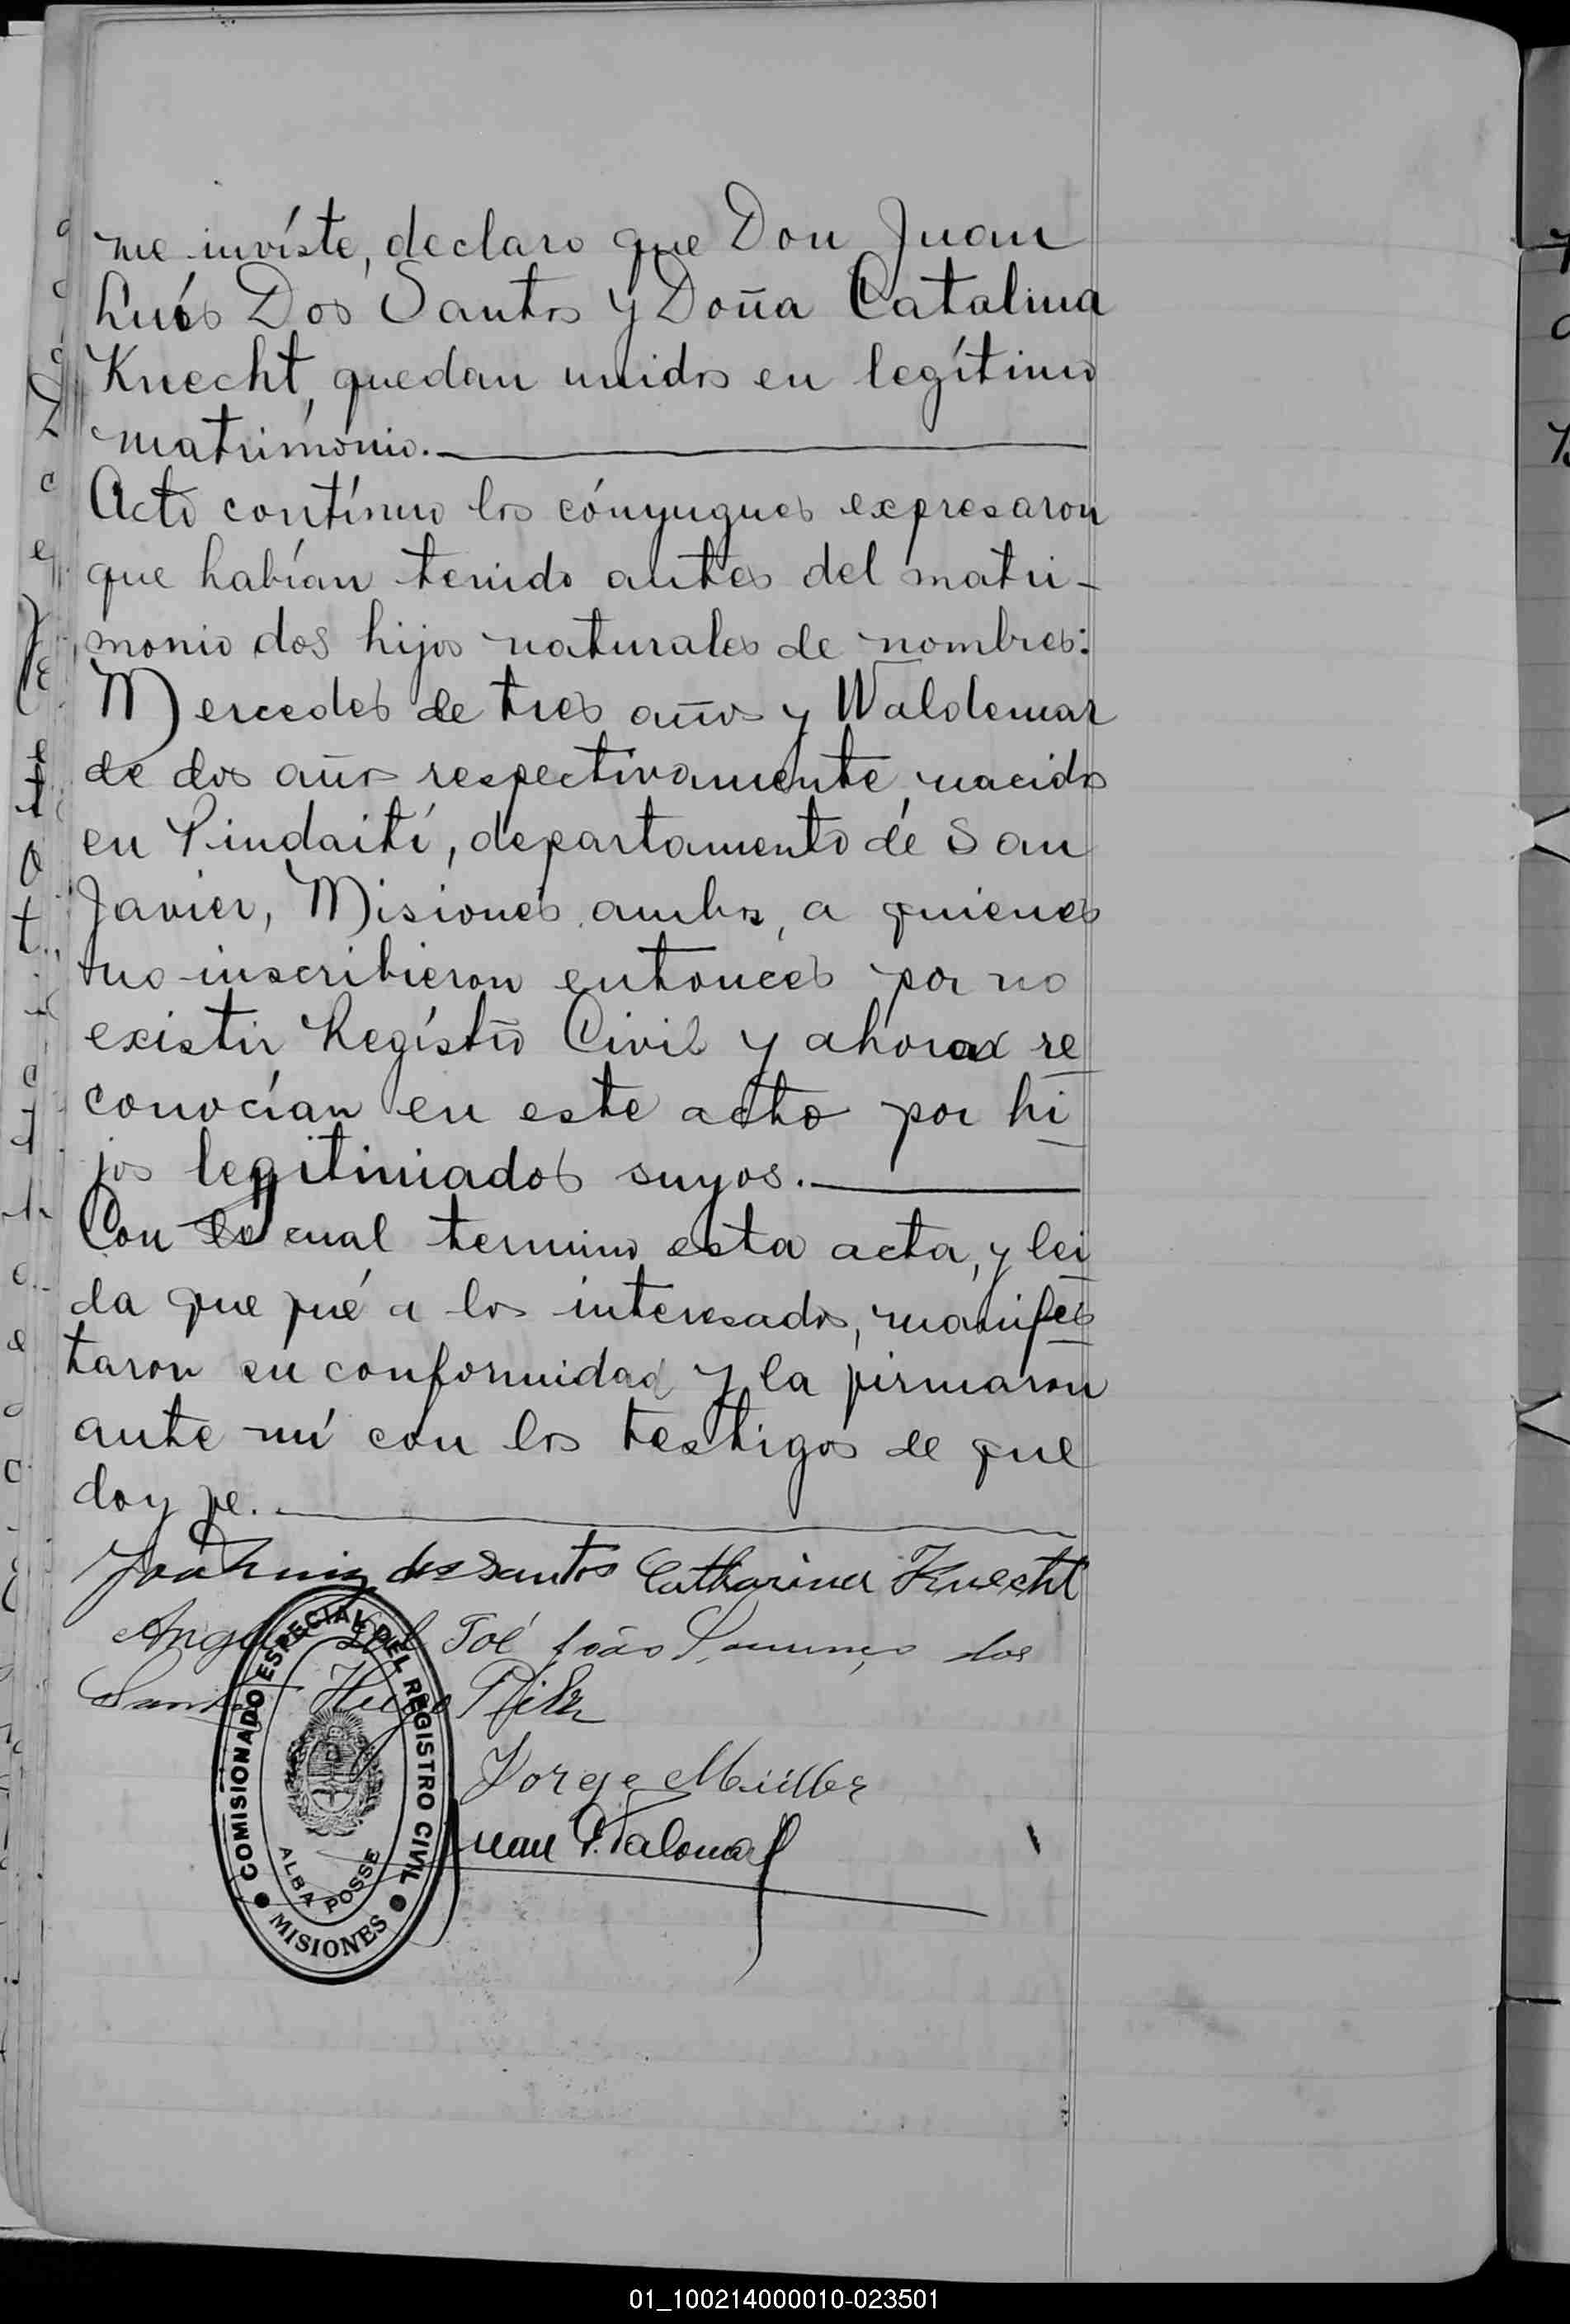 me invíste, declaro que Don Juan
Luís Dos Santos y Doña Catalina
Knecht, quedan unidos en legítimo
matrimonio.
Acto contínuo los cónyugues expresaron
que habían tenido antes del matri-
monio dos hijos naturales de nombres:
Mercedes de tres años y Waldemar
de dos años respectivamente, nacidos
en Pindaití, departamento de San
Javier, Misiones, ambos, a quienes
no inscribieron entonces por no
existir Regístro Civil y ahora re
conocían en este acto por hi
jos legitimados suyos.
Con lo cual termino esta acta, y lei
da que fué a los interesados, manifes
taron su conformidad y la firmaron
ante mí con los testigos de que
doy fe.
João Luiz dos Santos Catharina Knecht
João dos
Santos Hugo
Jorge Müller
Juan P. Palomar
COMISIONADO ESPECIAL DEL REGISTRO CIVIL
ALBA POSSE
MISIONES
01_100214000010-023501